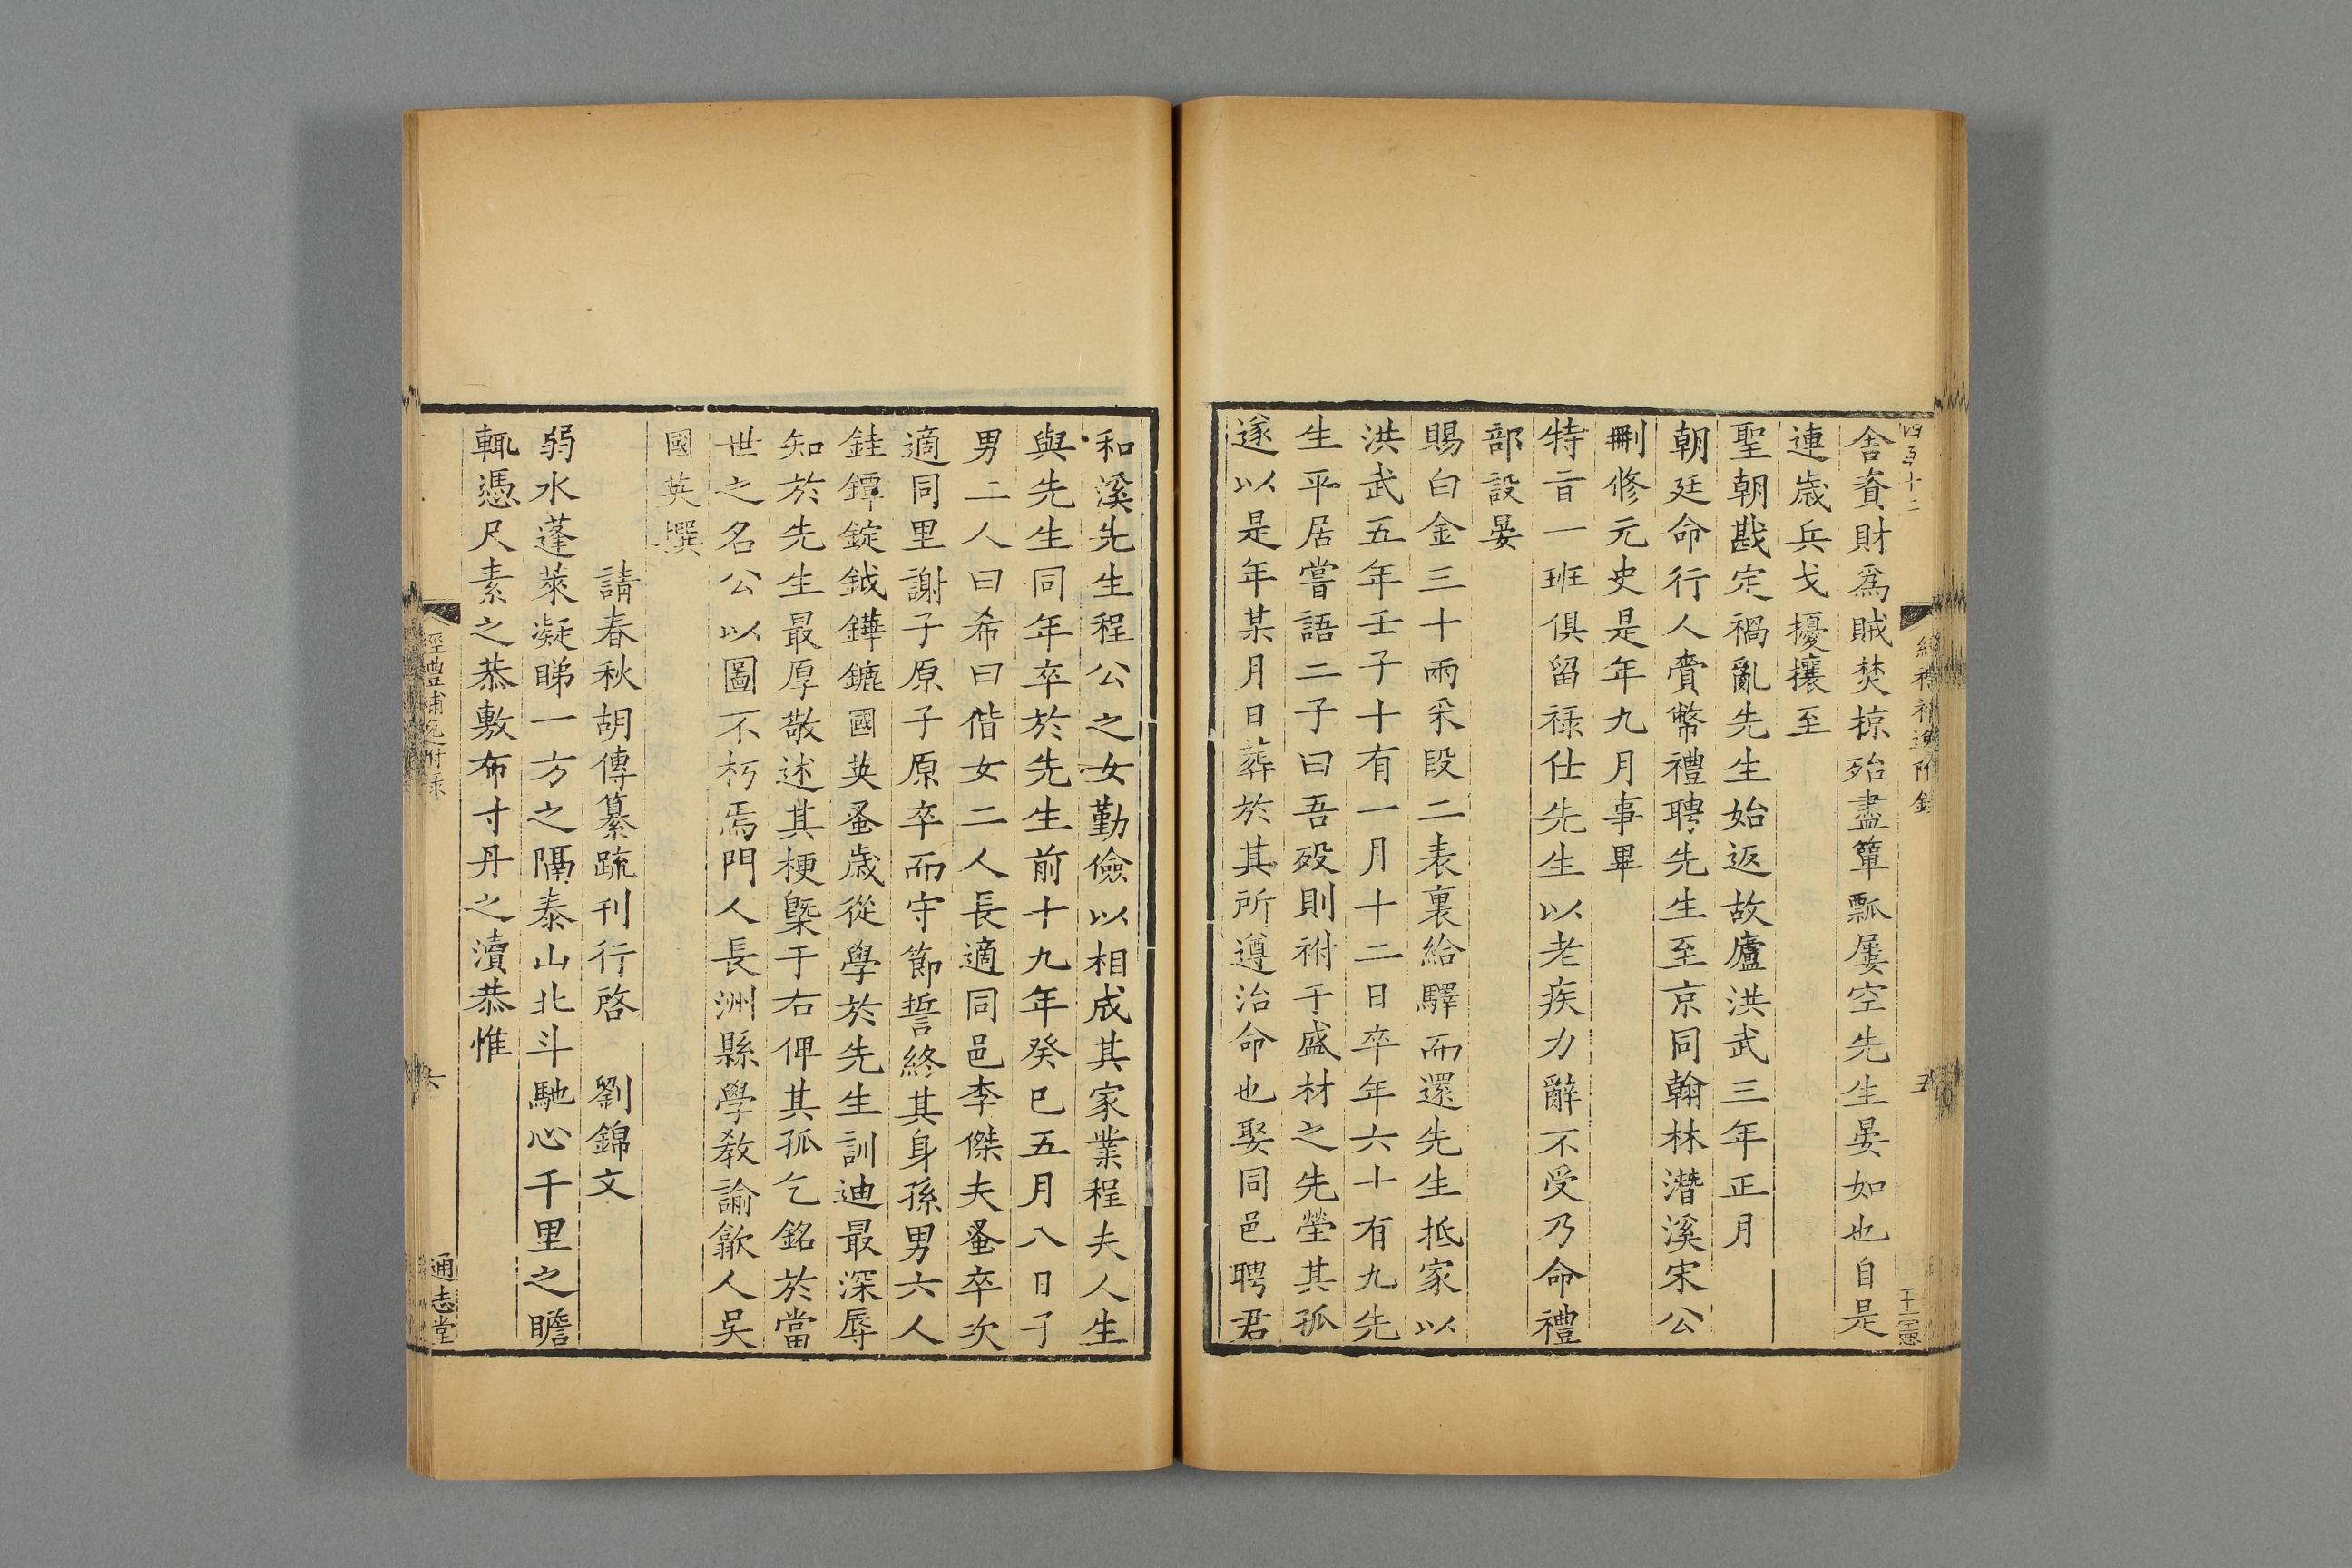 舍資財爲賊焚掠殆盡簞瓢屢空先生晏如也自是
連歲兵戈擾攘至
聖朝戡定禍亂先生始返故廬洪武三年正月
朝廷命行人賫幣禮聘先生至京同翰林潛溪宋公
刪修元史是年九月事畢
特旨一班俱留祿仕先生以老疾力辭不受乃命禮
部設晏
賜白金三十兩采段二表裏給驛而還先生抵家以
洪武五年壬子十有一月十二日卒年六十有九先
生平居嘗語二子曰吾歿則祔于盛材之先塋其孤
遂以是年某月日葬於其所遵治命也娶同邑聘君
和溪先生程公之女勤儉以相成其家業程夫人生
與先生同年卒於先生前十九年癸巳五月八日子
男二人曰希曰偕女二人長適同邑李傑夫蚤卒次
適同里謝子原子原卒而守節誓終其身孫男六人
銈鐔錠鉞鏵鑣國英蚤歲從學於先生訓迪最深辱
知於先生最厚敬述其梗槩于右俾其孤乞銘於當
世之名公以圖不朽焉門人長洲縣學教諭歙人吳
國英撰
請春秋胡傳纂疏刊行啓 劉錦文
弱水蓬萊凝睇一方之隔泰山北斗馳心千里之瞻
輒憑尺素之恭敷布寸丹之瀆恭惟
經禮補逸附錄
六
通志堂